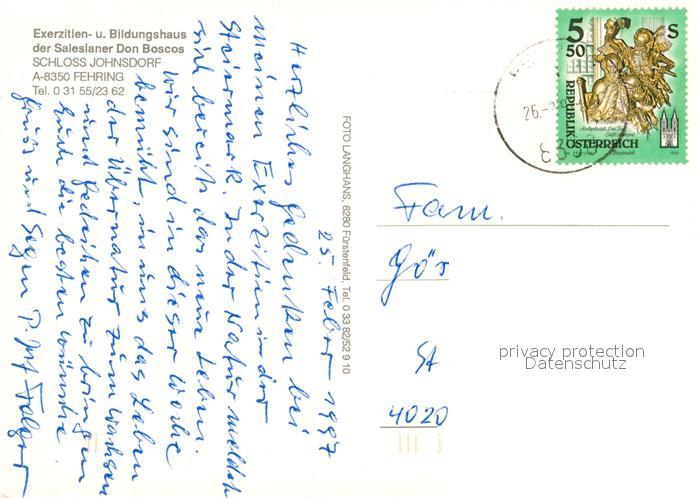 Exerzitien- u. Bildungshaus
der Salesianer Don Boscos
SCHLOSS JOHNSDORF
A-8350 FEHRING
Tel. 0 31 55/23 62
25. Feber 1997
Herzliches Gedenken bei
meinen Exerzitien in der
Steiermark. In der Natur meldet
sich bereits das neue Leben.
Wir sind in dieser Woche
bemüht, in uns das Leben
der Übernatur zum Wachsen
und Gedeihen zu bringen
Euch die besten Wünsche
Gruß und Segen P.
FOTO LANGHANS, 8280 Fürstenfeld, Tel. 0 33 82/52 9 10
5 50 S
REPUBLIK
ÖSTERREICH
26.-2.
Fam.
Gör
St
4020
privacy protection
Datenschutz